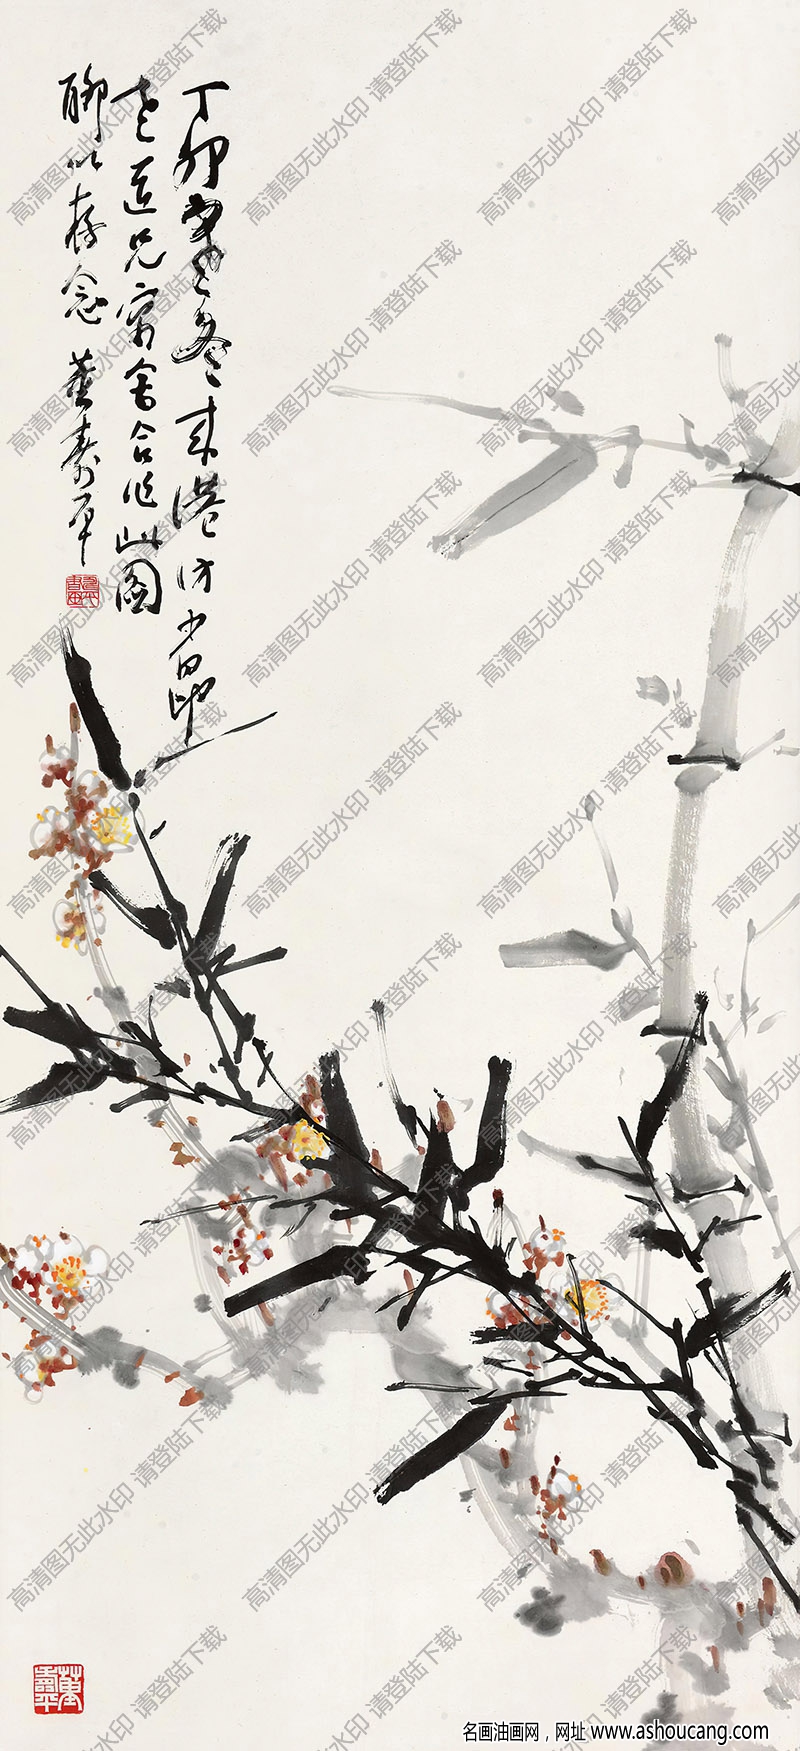 丁卯冬来港访少昂
老道兄寓舍合作此图
聊以存念 董寿平
高清图无此水印 请登陆下载
名画油画网，网址 www.ashoucang.com